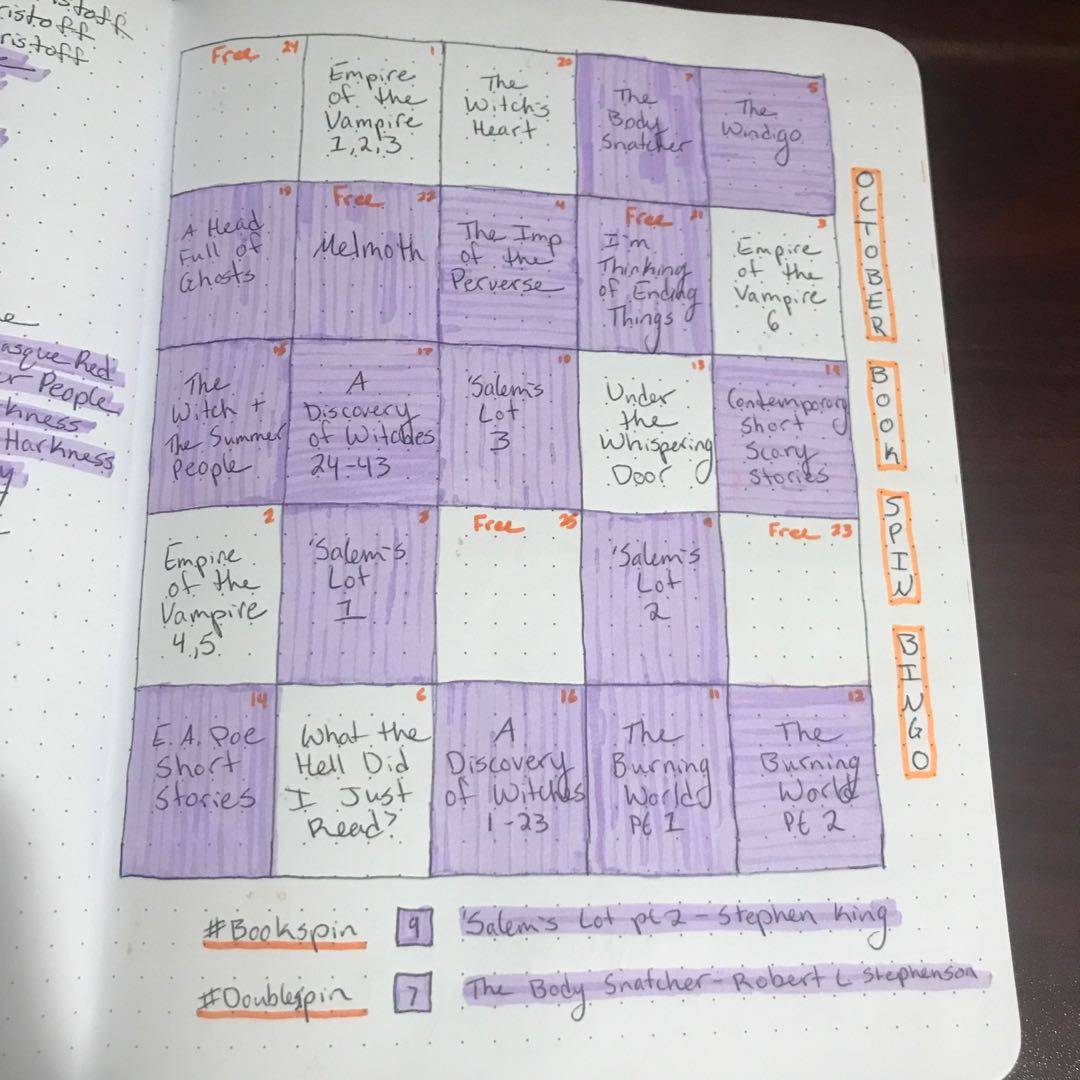 ristoff
ristoff
ristoff
e
asque Red
r People
kness
Harkness
y
Free 24
1
Empire
of the
Vampire
1,2,3
20
The
Witch's
Heart
7
The
Body
Snatcher
5
The
Windigo
19
A Head
Full of
Ghosts
Free 22
Melmoth
4
The Imp
of the
Perverse
Free 21
I'm
Thinking
of Ending
Things
3
Empire
of the
Vampire
6
15
The
Witch +
The Summer
People
17
A
Discovery
of Witches
24-43
10
'Salem's
Lot
3
13
Under
the
Whispering
Door
Contemporary
Short
Scary
Stories
2
Empire
of the
Vampire
4,5
'Salem's
Lot
1
Free 25
9
'Salem's
Lot
2
Free 23
14
E. A. Poe
Short
Stories
6
What the
Hell Did
I Just
Read?
16
A
Discovery
of Witches
1-23
11
The
Burning
World
Pt 1
12
The
Burning
World
Pt 2
OCTOBER
BOOK
SPIN
BINGO
#Bookspin 9 'Salem's Lot pt 2 - Stephen King
#Doublespin 7 The Body Snatcher - Robert L Stephenson